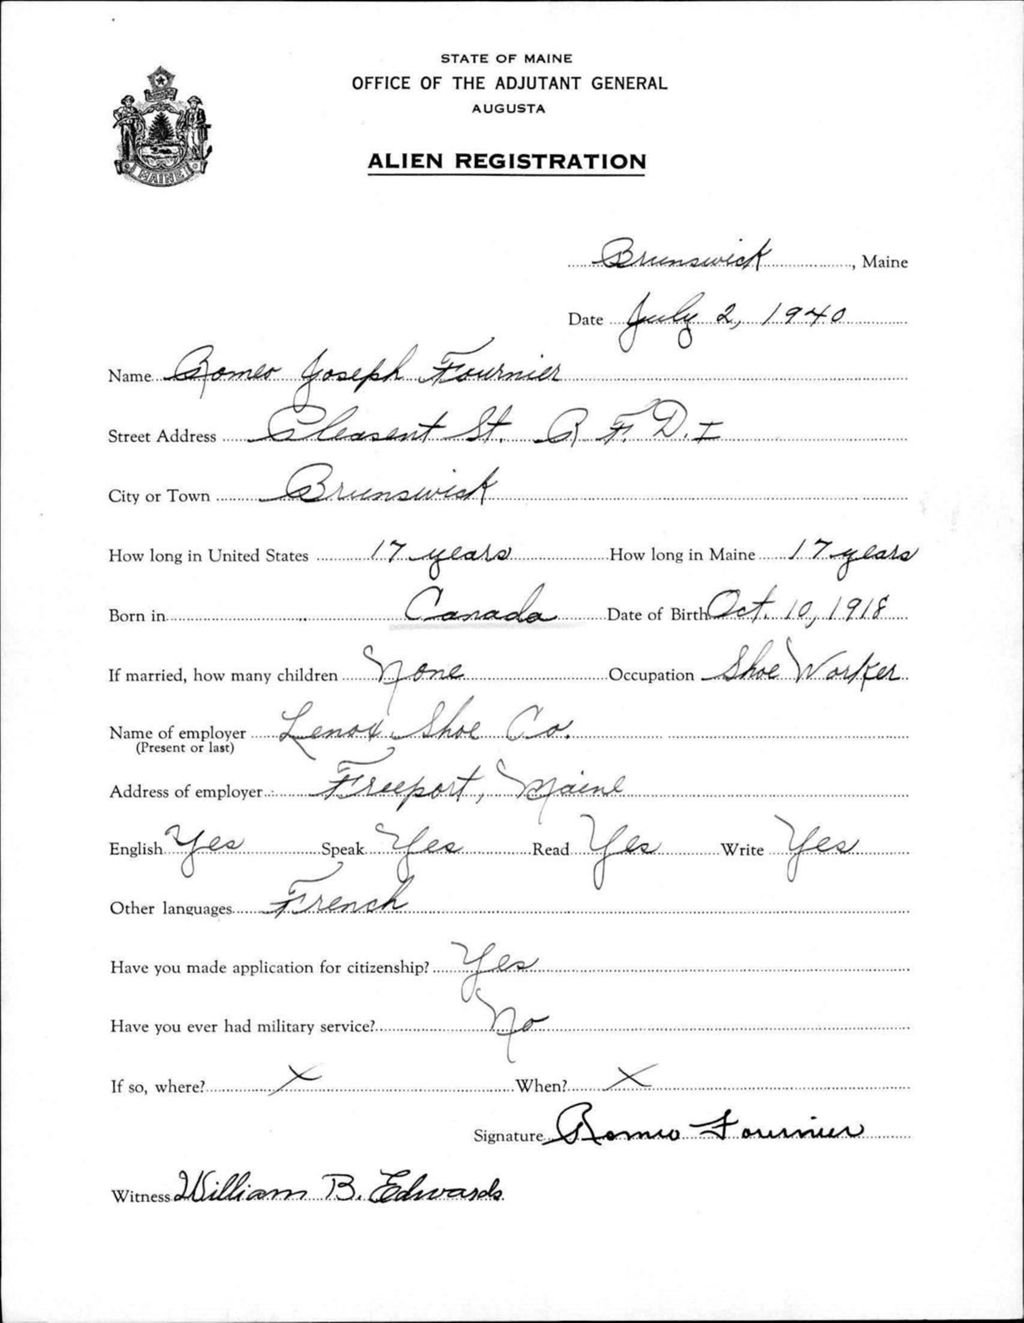 STATE OF MAINE
OFFICE OF THE ADJUTANT GENERAL
AUGUSTA
ALIEN REGISTRATION
MAINE
Brunswick, Maine
Date July 2, 1940
Name Romeo Joseph Fournier
Street Address Pleasent St. R F. D. I
City or Town Brunswick
How long in United States 17 years How long in Maine 17 years
Born in Canada Date of Birth Oct. 10, 1918
If married, how many children None Occupation Shoe Worker
Name of employer Lenox Shoe Co.
(Present or last)
Address of employer Freeport, Maine
English Yes Speak Yes Read Yes Write Yes
Other languages French
Have you made application for citizenship? Yes
Have you ever had military service? No
If so, where? X When? X
Signature Romeo Fournier
Witness William B. Edwards